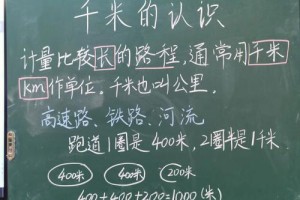 千米的认识
计量比较长的路程,通常用千米
km作单位。千米也叫公里。
高速路、铁路、河流
跑道1圈是400米,2圈半是1千米
400米 400米 200米
400+400+200=1000(米)